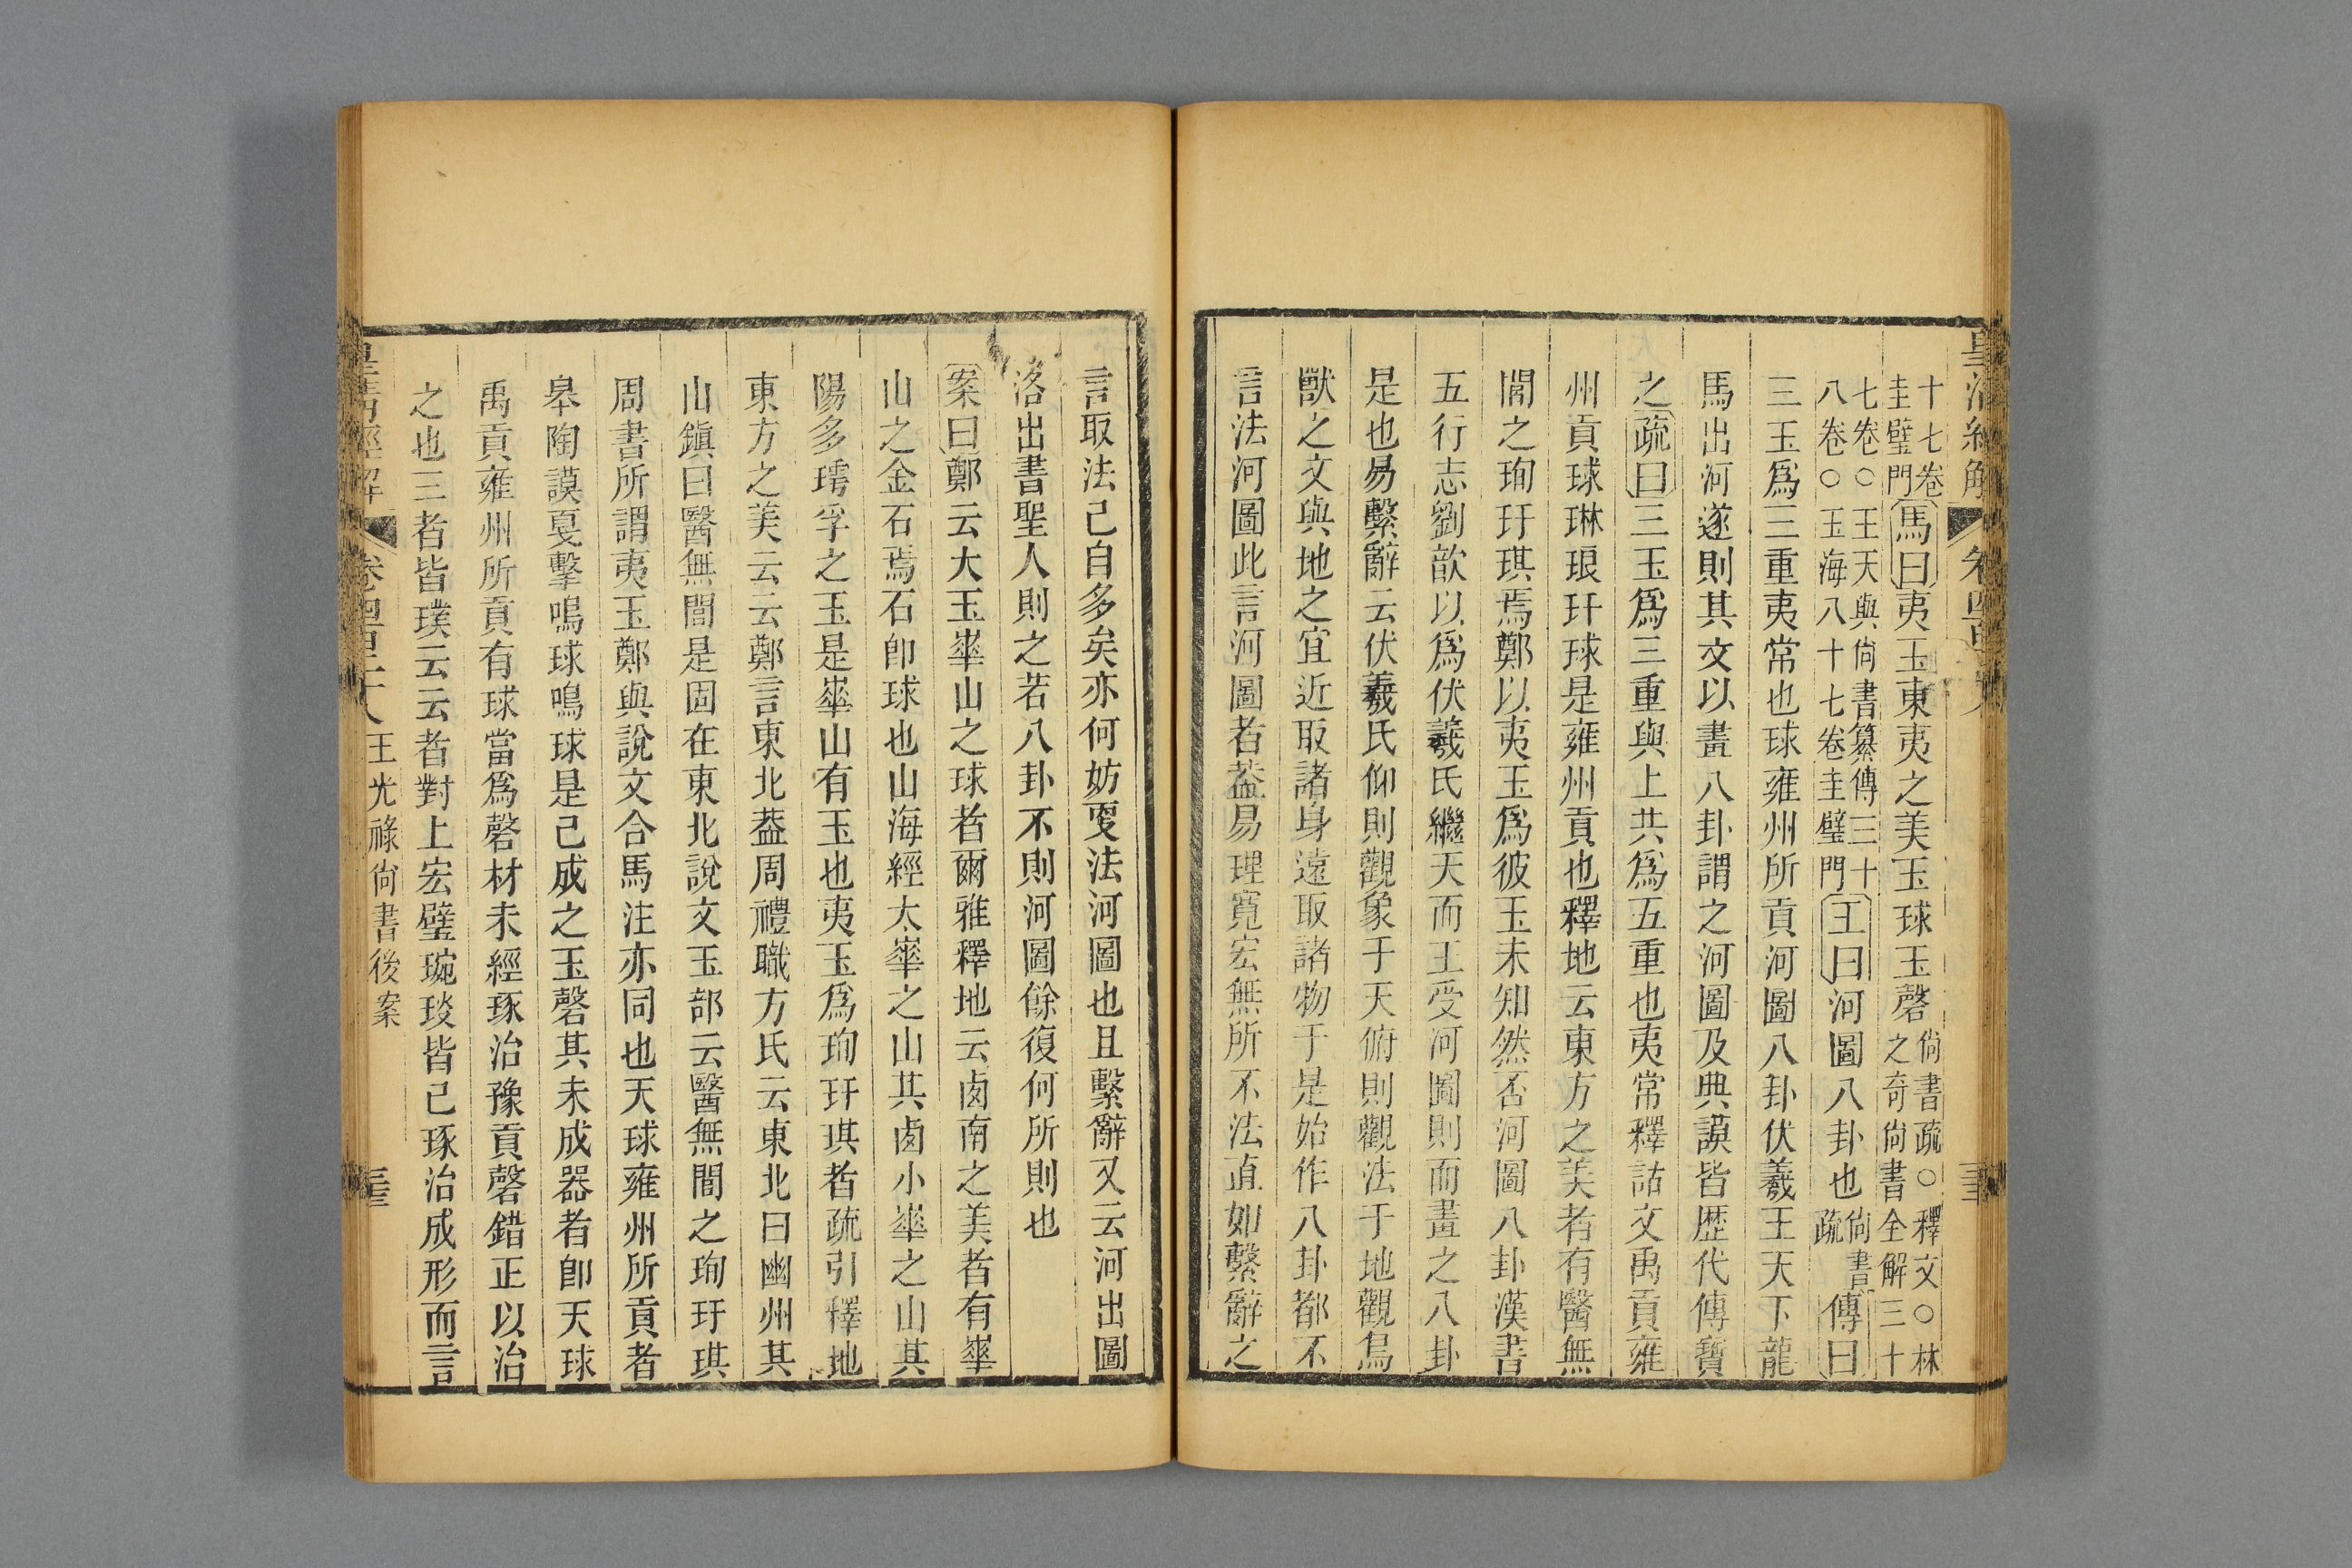 十七卷圭璧門馬曰夷玉東夷之美玉球玉磬尚書疏○釋文○林之奇尚書全解三十
七卷○王天與尚書纂傳三十八卷○玉海八十七卷圭璧門王曰河圖八卦也尚書疏傳曰
三玉爲三重夷常也球雍州所貢河圖八卦伏羲王天下龍
馬出河遂則其文以畫八卦謂之河圖及典謨皆歴代傳寶
之疏曰三玉爲三重與上共爲五重也夷常釋詁文禹貢雍
州貢球琳琅玕球是雍州貢也釋地云東方之美者有醫無
閭之珣玗琪焉鄭以夷玉爲彼玉未知然否河圖八卦漢書
五行志劉歆以爲伏羲氏繼天而王受河圖則而畫之八卦
是也易繫辭云伏羲氏仰則觀象于天俯則觀法于地觀鳥
獸之文與地之宜近取諸身遠取諸物于是始作八卦都不
言法河圖此言河圖者葢易理寬宏無所不法直如繫辭之
言取法己自多矣亦何妨更法河圖也且繫辭又云河出圖
洛出書聖人則之若八卦不則河圖餘復何所則也
案曰鄭云大玉崋山之球者爾雅釋地云卤南之美者有崋
山之金石焉石卽球也山海經太崋之山其卤小崋之山其
陽多㻬孚之玉是崋山有玉也夷玉爲珣玗琪者疏引釋地
東方之美云云鄭言東北葢周禮職方氏云東北曰幽州其
山鎭曰醫無閭是固在東北說文玉部云醫無閭之珣玗琪
周書所謂夷玉鄭與說文合馬注亦同也天球雍州所貢者
皋陶謨戛擊鳴球鳴球是己成之玉磬其未成器者卽天球
禹貢雍州所貢有球當爲磬材未經琢治豫貢磬錯正以治
之也三者皆璞云云者對上宏璧琬琰皆己琢治成形而言
皇淸經解 卷四百二十八 王光祿尚書後案